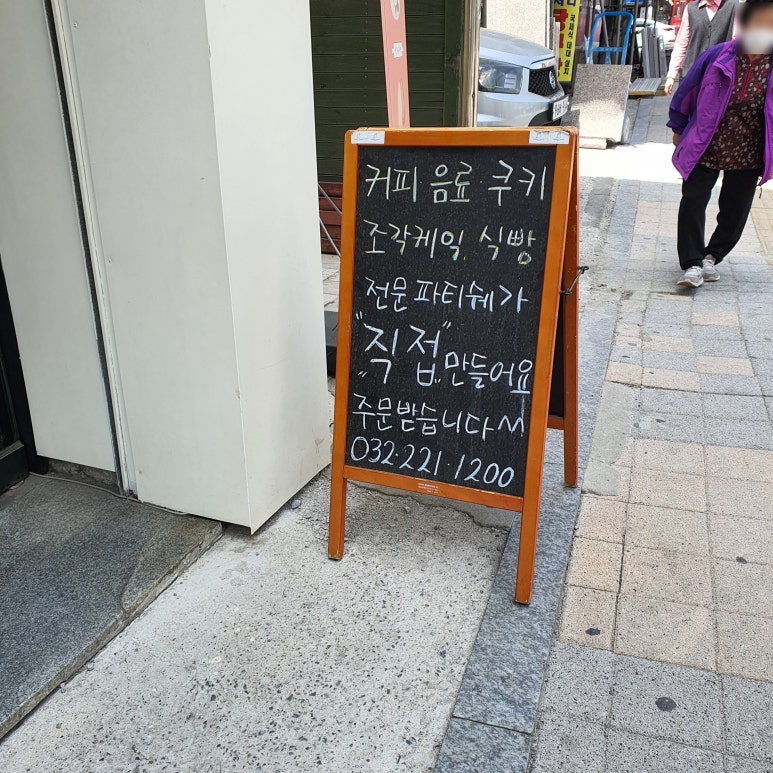 커피·음료·쿠키
조각케익, 식빵
전문파티쉐가
"직접" 만들어요
주문받습니다^^
032·221·1200